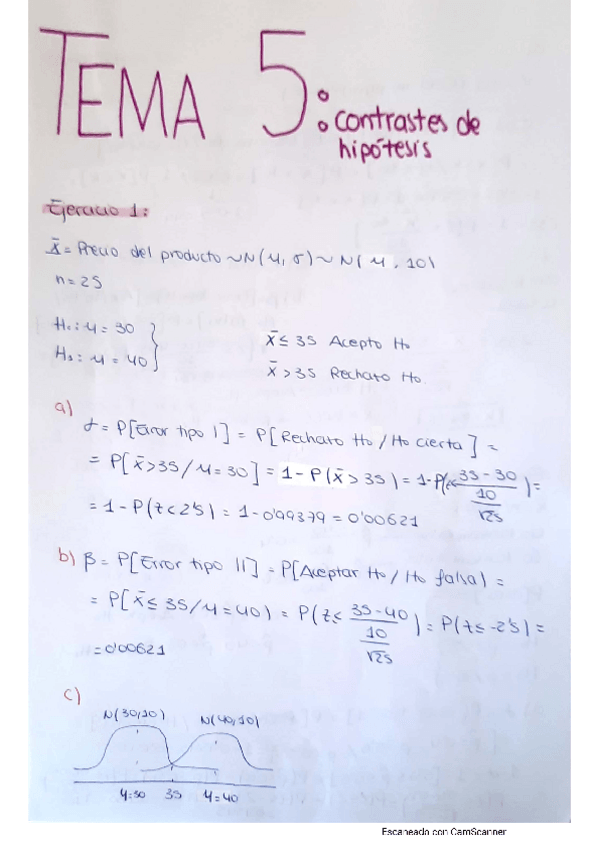 TEMA 5: contrastes de
hipótesis
Ejercicio 1:
X̄ = Precio del producto ~N(μ, σ) ~ N(μ, 10)
n=25
H₀: μ = 30
H₁: μ = 40
x̄ ≤ 35 Acepto H₀
x̄ > 35 Rechazo H₀.
a)
α = P[Error tipo I] = P[Rechazo H₀ / H₀ cierta] =
= P[x̄>35/μ=30] = 1-P(x̄>35) = 1-P(z< (35-30)/(10/√25)) =
= 1-P(z<2'5) = 1-0'99379 = 0'00621
b) β = P[Error tipo II] = P[Aceptar H₀ / H₀ falsa) =
= P[x̄ ≤ 35/μ=40) = P(z≤ (35-40)/(10/√25)) = P(z≤-2'5) =
=0'00621
c)
N(30,10) N(40,10)
μ=30 35 μ=40
Escaneado con CamScanner